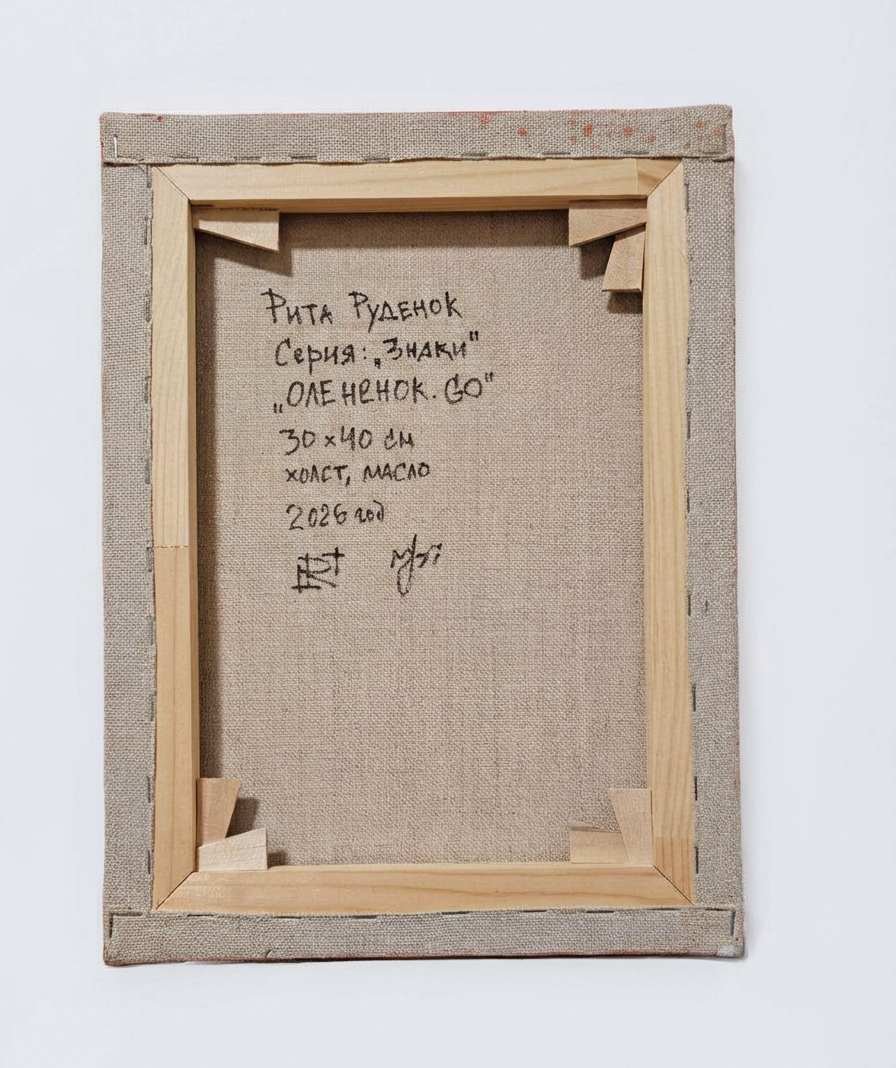 Рита Руденок
Серия: „Знаки"
„ОЛЕНЕНОК. GO"
30 × 40 см
холст, масло
2026 год